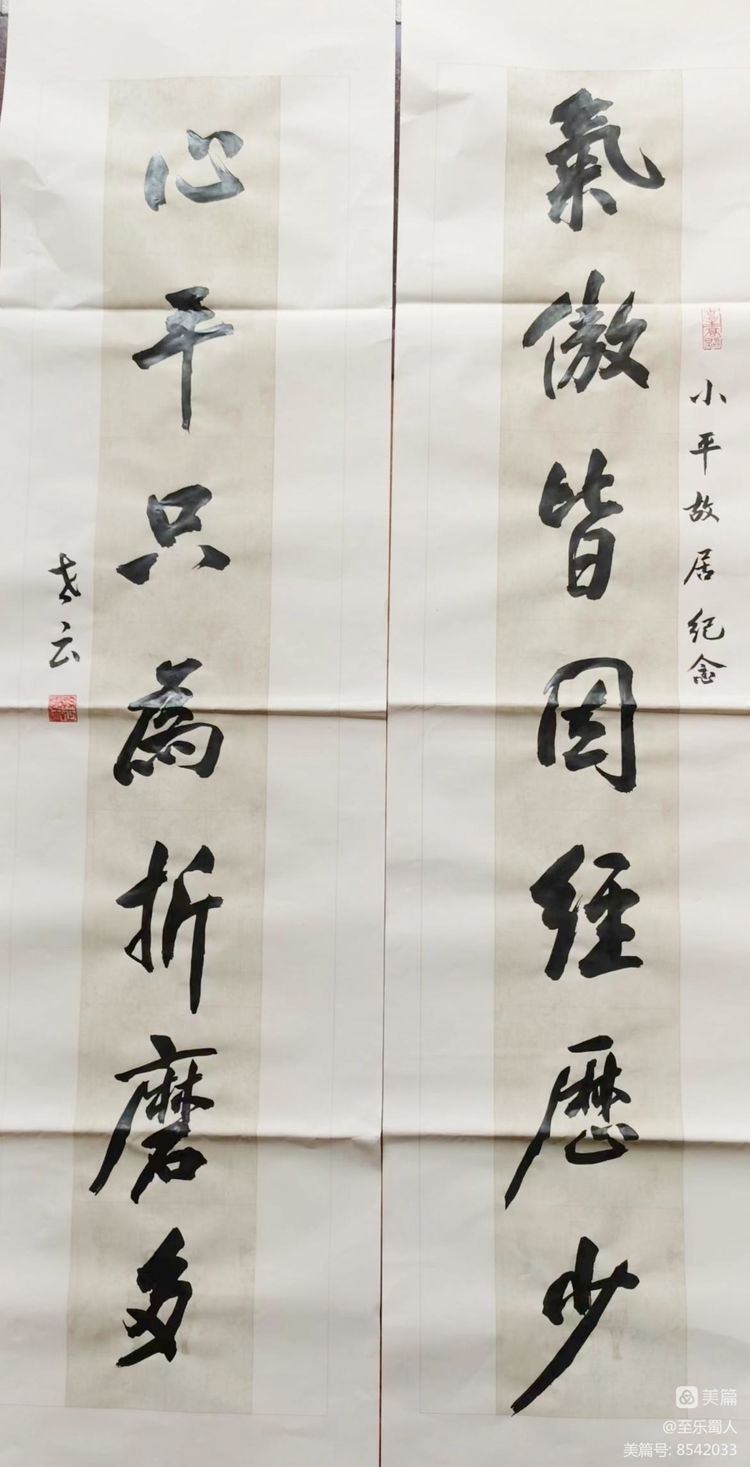 小平故居纪念
氣傲皆因經歷少
心平只為折磨多
老云
美篇
@至乐蜀人
美篇号: 8542033